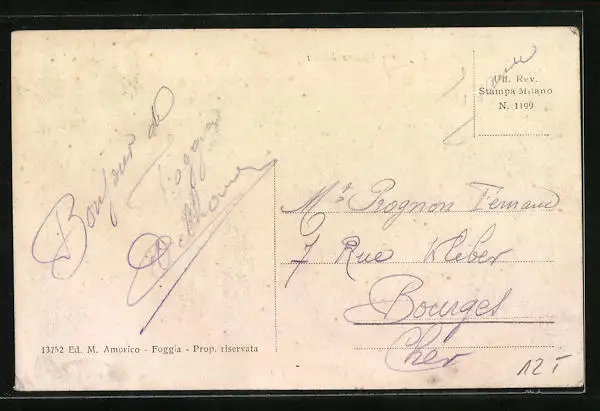 Bonjour de
Foggia
Uff. Rev.
Stampa Milano
N. 1199
Mr Prognon Fernand
7 Rue
Bourges
Cher
13752 Ed. M. Amorico - Foggia - Prop. riservata
12